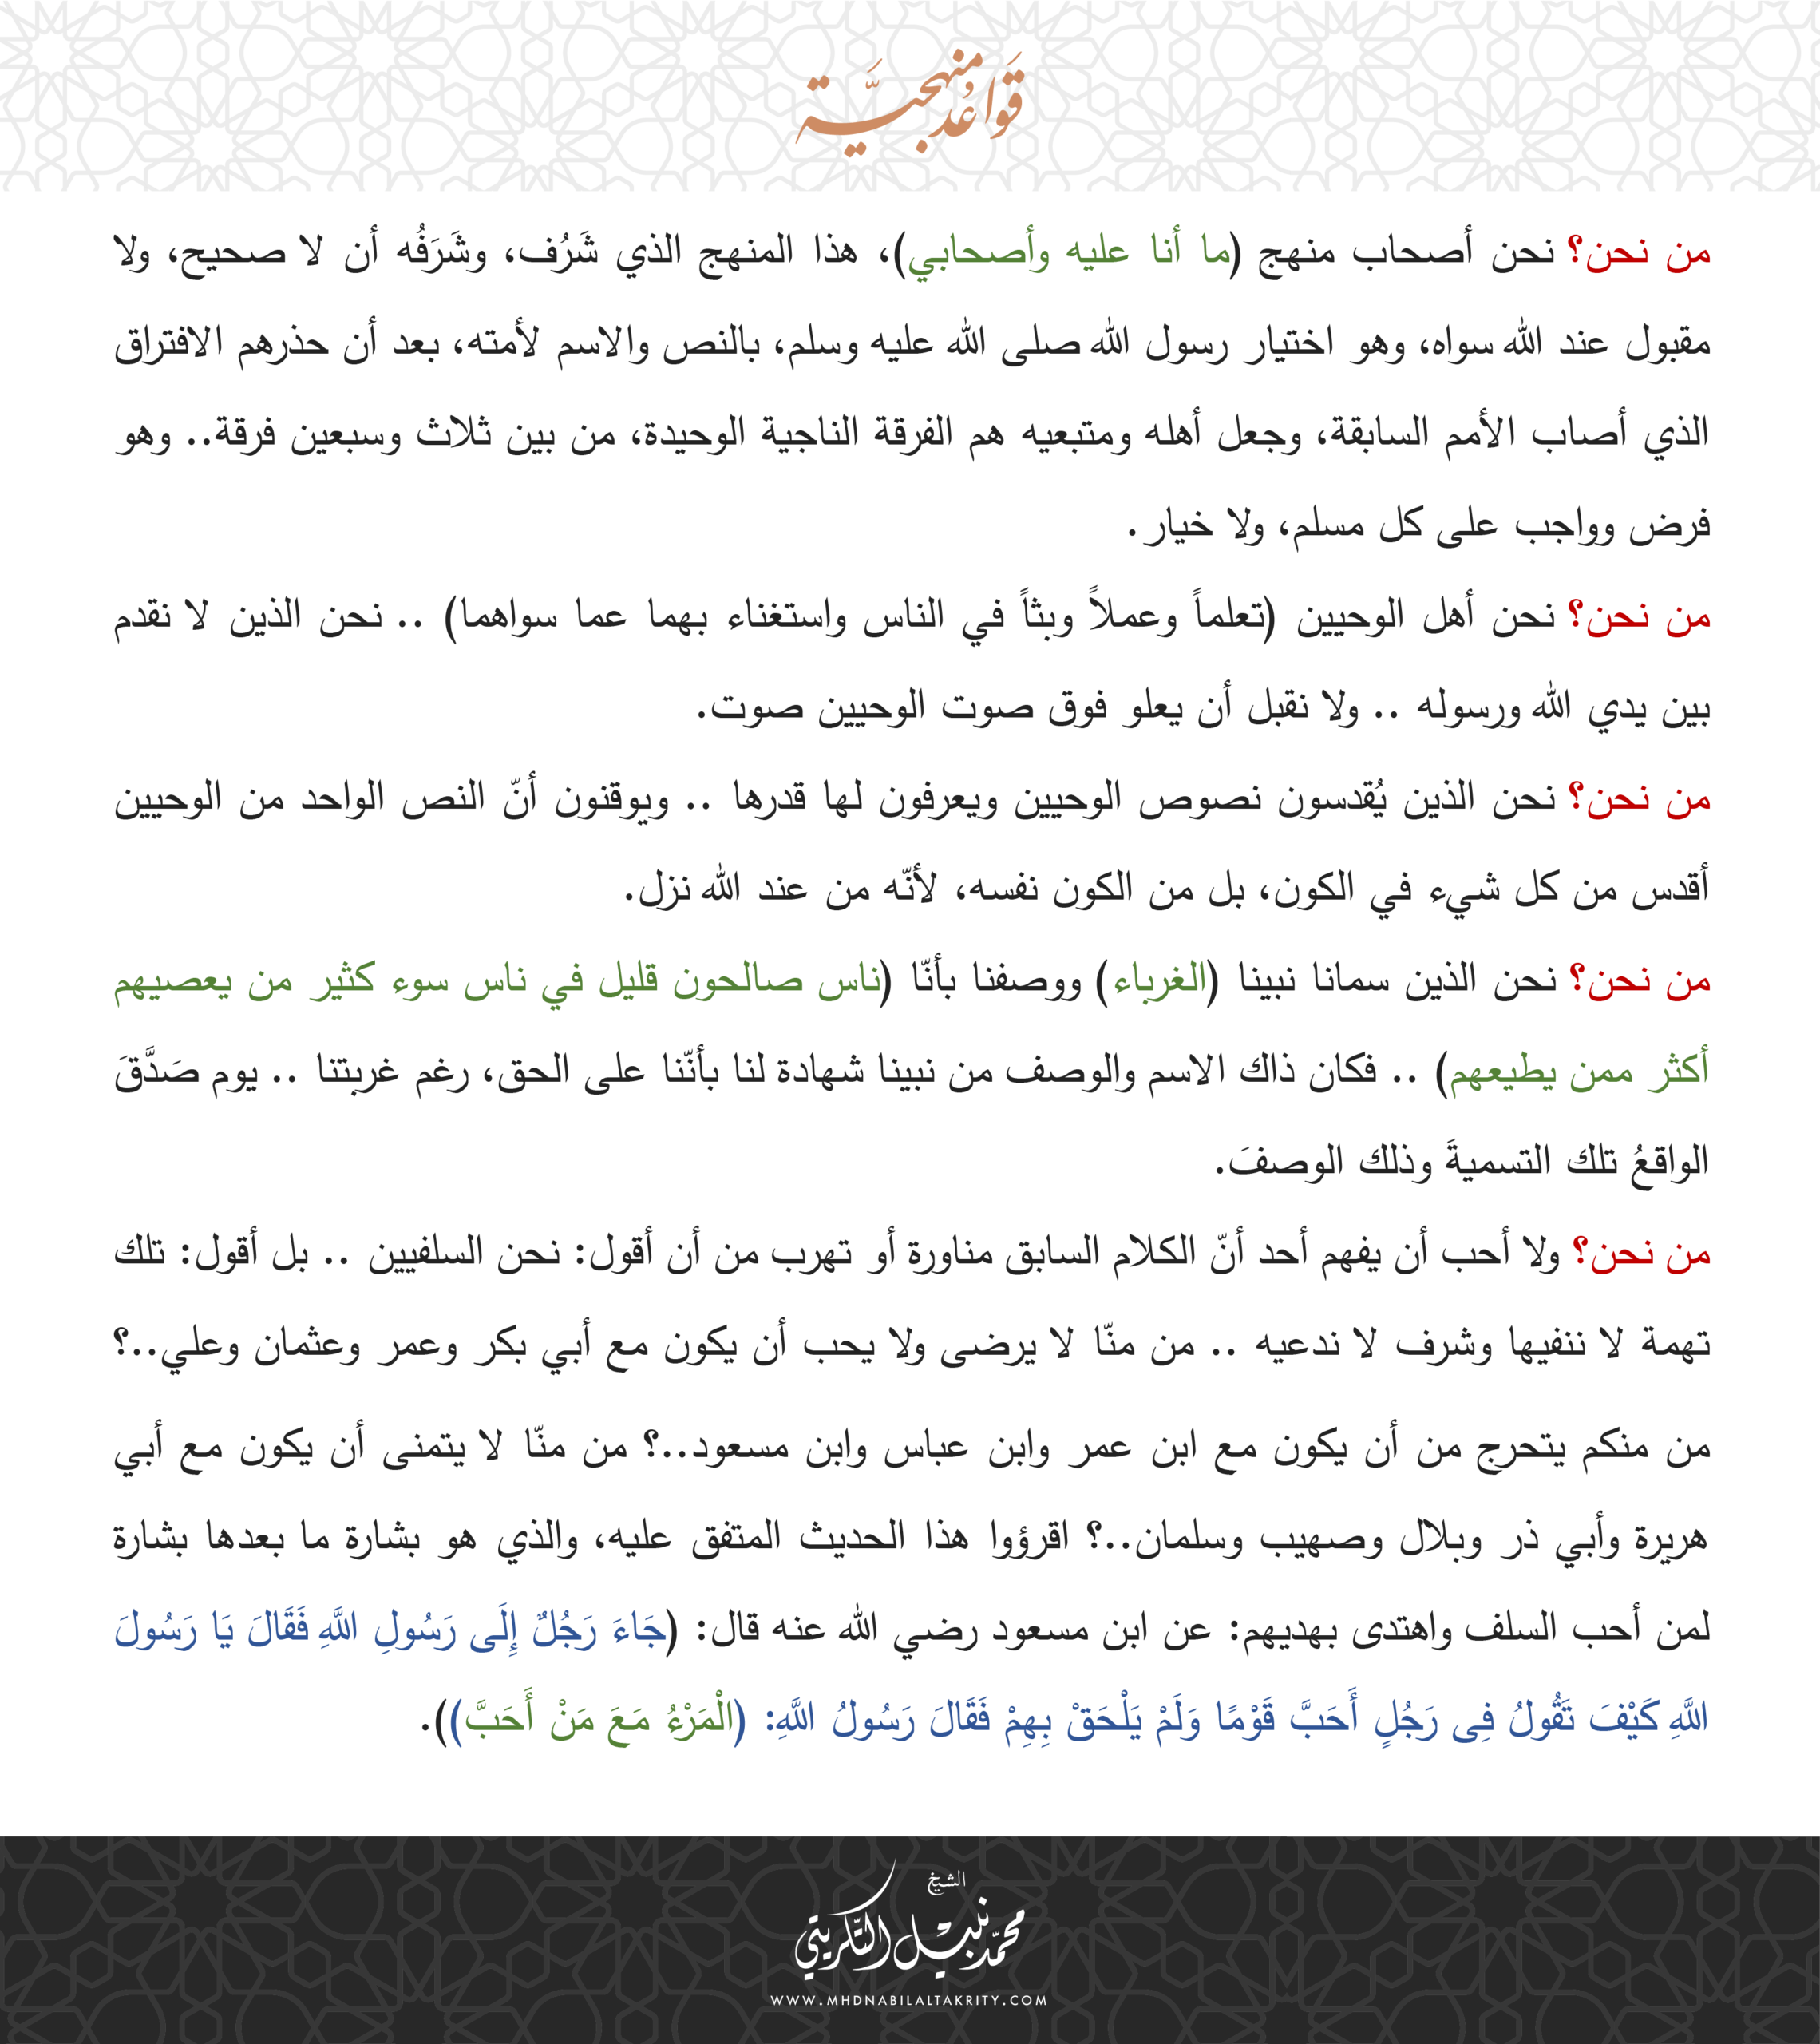 قَوَاعُد منهجيَّة
من نحن؟ نحن أصحاب منهج (ما أنا عليه وأصحابي)، هذا المنهج الذي شَرُف، وشَرَفُه أن لا صحيح، ولا
مقبول عند الله سواه، وهو اختيار رسول الله صلى الله عليه وسلم، بالنص والاسم لأمته، بعد أن حذرهم الافتراق
الذي أصاب الأمم السابقة، وجعل أهله ومتبعيه هم الفرقة الناجية الوحيدة، من بين ثلاث وسبعين فرقة.. وهو
فرض وواجب على كل مسلم، ولا خيار.
من نحن؟ نحن أهل الوحيين (تعلماً وعملاً وبثاً في الناس واستغناء بهما عما سواهما) .. نحن الذين لا نقدم
بين يدي الله ورسوله .. ولا نقبل أن يعلو فوق صوت الوحيين صوت.
من نحن؟ نحن الذين يُقدسون نصوص الوحيين ويعرفون لها قدرها .. ويوقنون أنّ النص الواحد من الوحيين
أقدس من كل شيء في الكون، بل من الكون نفسه، لأنّه من عند الله نزل.
من نحن؟ نحن الذين سمانا نبينا (الغرباء) ووصفنا بأنّا (ناس صالحون قليل في ناس سوء كثير من يعصيهم
أكثر ممن يطيعهم) .. فكان ذاك الاسم والوصف من نبينا شهادة لنا بأنّنا على الحق، رغم غربتنا .. يوم صَدَّقَ
الواقعُ تلك التسميةَ وذلك الوصفَ.
من نحن؟ ولا أحب أن يفهم أحد أنّ الكلام السابق مناورة أو تهرب من أن أقول: نحن السلفيين .. بل أقول: تلك
تهمة لا ننفيها وشرف لا ندعيه .. من منّا لا يرضى ولا يحب أن يكون مع أبي بكر وعمر وعثمان وعلي..؟
من منكم يتحرج من أن يكون مع ابن عمر وابن عباس وابن مسعود..؟ من منّا لا يتمنى أن يكون مع أبي
هريرة وأبي ذر وبلال وصهيب وسلمان..؟ اقرؤوا هذا الحديث المتفق عليه، والذي هو بشارة ما بعدها بشارة
لمن أحب السلف واهتدى بهديهم: عن ابن مسعود رضي الله عنه قال: (جَاءَ رَجُلٌ إِلَى رَسُولِ اللَّهِ فَقَالَ يَا رَسُولَ
اللَّهِ كَيْفَ تَقُولُ فِى رَجُلٍ أَحَبَّ قَوْمًا وَلَمْ يَلْحَقْ بِهِمْ فَقَالَ رَسُولُ اللَّهِ: (الْمَرْءُ مَعَ مَنْ أَحَبَّ)).
الشيخ
محمّد نبيل التّكريتي
WWW.MHDNABILALTAKRITY.COM